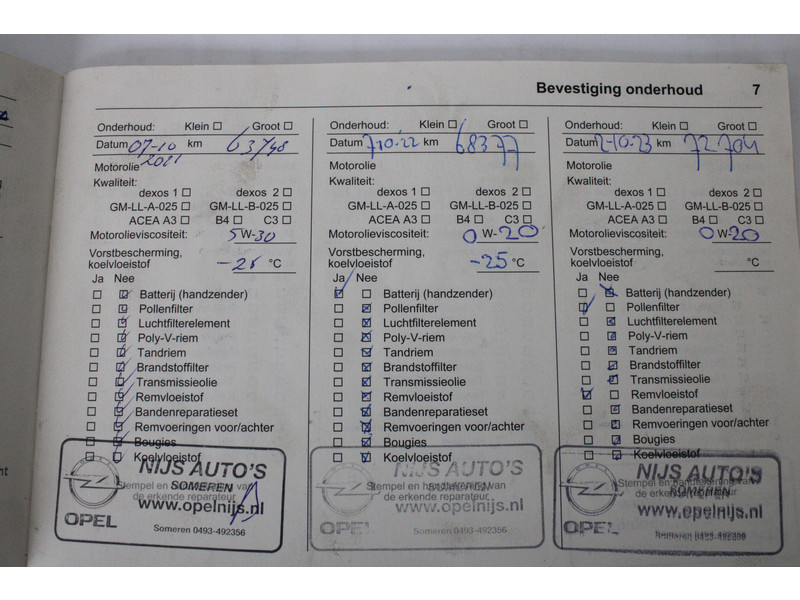 Bevestiging onderhoud 7
Onderhoud: Klein ☐ Groot ☐
Datum 07-10 km 63748
2021
Motorolie
Kwaliteit:
dexos 1 ☐ dexos 2 ☐
GM-LL-A-025 ☐ GM-LL-B-025 ☐
ACEA A3 ☐ B4 ☐ C3 ☐
Motorolieviscositeit: 5 W-30
Vorstbescherming,
koelvloeistof -25 °C
Ja Nee
Batterij (handzender)
Pollenfilter
Luchtfilterelement
Poly-V-riem
Tandriem
Brandstoffilter
Transmissieolie
Remvloeistof
Bandenreparatieset
Remvoeringen voor/achter
Bougies
Koelvloeistof
Stempel en handtekening van
de erkende reparateur
NIJS AUTO'S
SOMEREN
www.opelnijs.nl
OPEL
Someren 0493-492356
Onderhoud: Klein ☐ Groot ☐
Datum 7.10.22 km 68377
Motorolie
Kwaliteit:
dexos 1 ☐ dexos 2 ☐
GM-LL-A-025 ☐ GM-LL-B-025 ☐
ACEA A3 ☐ B4 ☐ C3 ☐
Motorolieviscositeit: 0 W-20
Vorstbescherming,
koelvloeistof -25 °C
Ja Nee
Batterij (handzender)
Pollenfilter
Luchtfilterelement
Poly-V-riem
Tandriem
Brandstoffilter
Transmissieolie
Remvloeistof
Bandenreparatieset
Remvoeringen voor/achter
Bougies
Koelvloeistof
Stempel en handtekening van
de erkende reparateur
NIJS AUTO'S
SOMEREN
www.opelnijs.nl
OPEL
Someren 0493-492356
Onderhoud: Klein ☐ Groot ☐
Datum 2-10.23 km 72.704
Motorolie
Kwaliteit:
dexos 1 ☐ dexos 2 ☐
GM-LL-A-025 ☐ GM-LL-B-025 ☐
ACEA A3 ☐ B4 ☐ C3 ☐
Motorolieviscositeit: 0 W-20
Vorstbescherming,
koelvloeistof °C
Ja Nee
Batterij (handzender)
Pollenfilter
Luchtfilterelement
Poly-V-riem
Tandriem
Brandstoffilter
Transmissieolie
Remvloeistof
Bandenreparatieset
Remvoeringen voor/achter
Bougies
Koelvloeistof
Stempel en handtekening van
de erkende reparateur
NIJS AUTO'S
SOMEREN
www.opelnijs.nl
OPEL
Someren 0493-492356